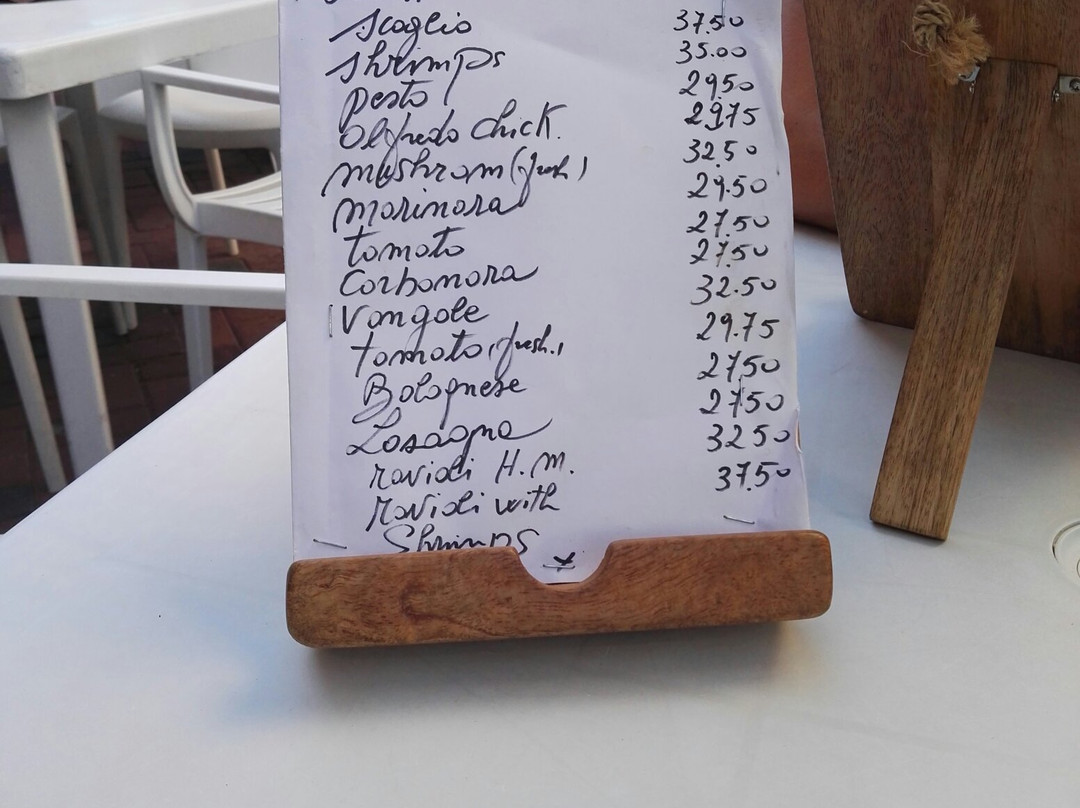 Scoglio 37.50
Shrimps 35.00
Pesto 29.50
Olfredo Chick. 29.75
mushrom (fresh) 32.50
morinora 29.50
tomato 27.50
Corbonora 27.50
Vongole 32.50
tomato (fresh.) 29.75
Bolognese 27.50
Losagna 27.50
ravioli H.M. 32.50
ravioli with 37.50
Shrimps